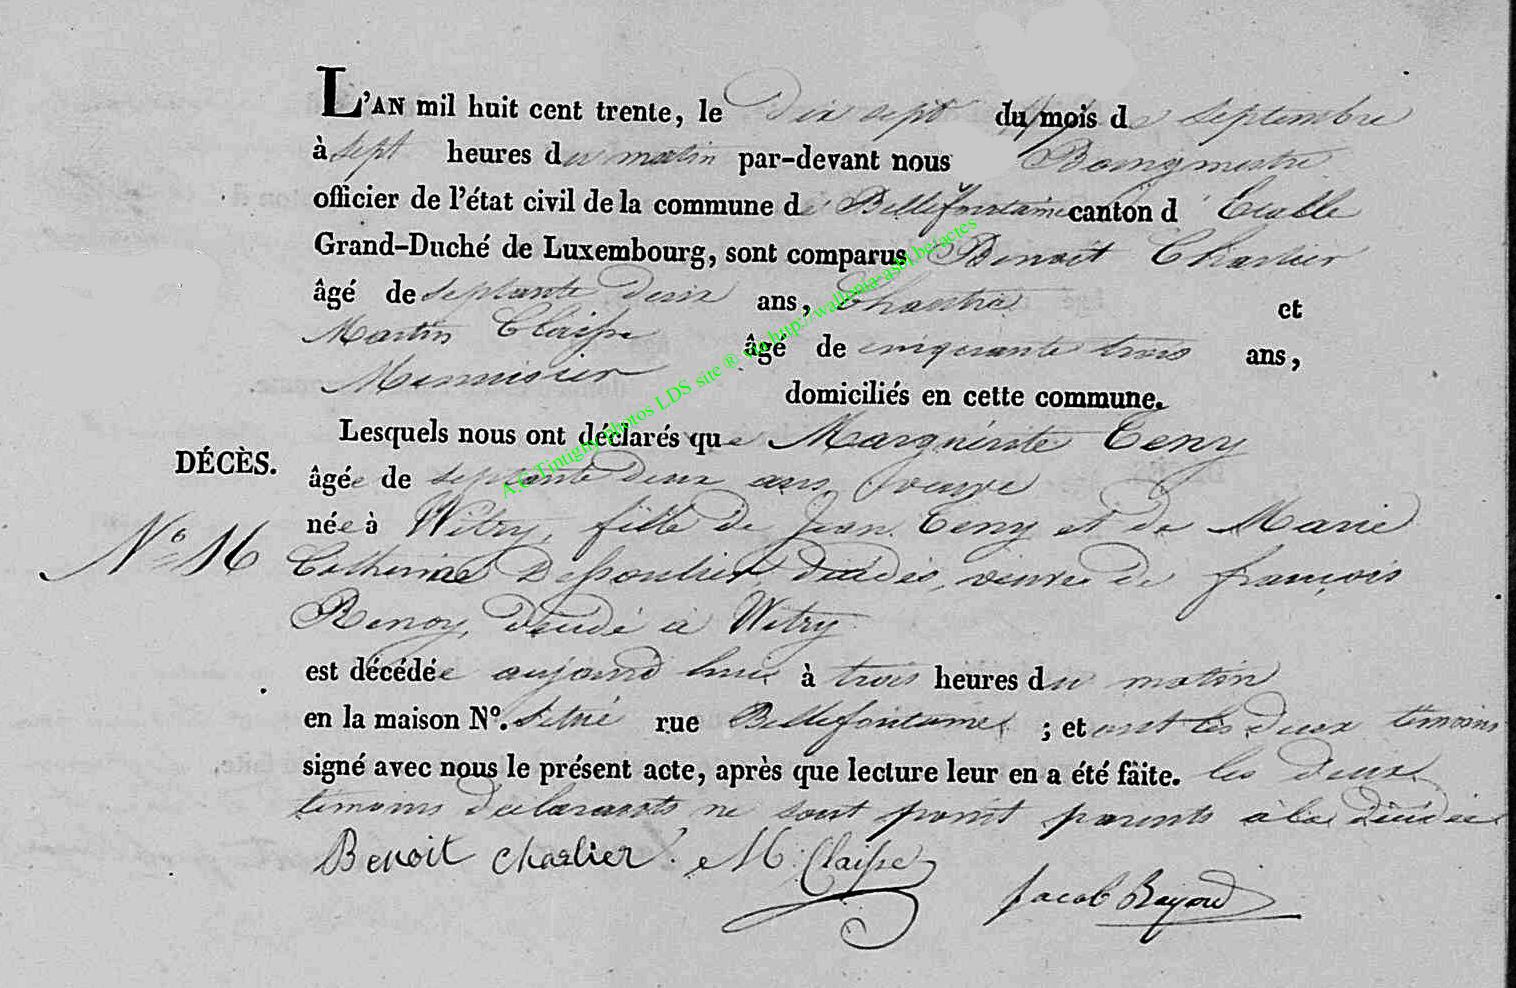 L'AN mil huit cent trente, le Dix sept du mois de septembre
à sept heures du matin par-devant nous Bourgmestre
officier de l'état civil de la commune de Bellefontaine canton d' Etalle
Grand-Duché de Luxembourg, sont comparus Benoit Charlier
âgé de septante deux ans, Chantre et
Martin Claisse âgé de cinquante trois ans,
Menuisier domiciliés en cette commune.
Lesquels nous ont déclarés que Marguerite Teny
DÉCÈS.
âgée de septante deux ans veuve
née à Witry, fille de Jean Teny et de Marie
N° 16
Catherine décédés, veuve de françois
Renoy, décédé à Witry
est décédée aujourd'hui à trois heures du matin
en la maison N°. situé rue Bellefontaine ; et ont les deux témoins
signé avec nous le présent acte, après que lecture leur en a été faite. les deux
témoins déclarants ne sont point parents à la décédée
Benoit Charlier M Claisse
Jacob
A.G Tintigny photos LDS site ® via http://wallonia-asbl.be/actes